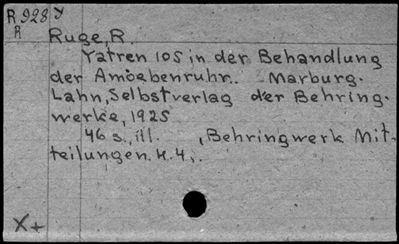 R 928 y
R
Ruge, R.
Yatren 105 in der Behandlung
der Amöbenruhr. Marburg-
Lahn, Selbstverlag der Behring-
werke, 1925
46 s., ill. , Behringwerk Mit-
teilungen. H. 4,.
X+